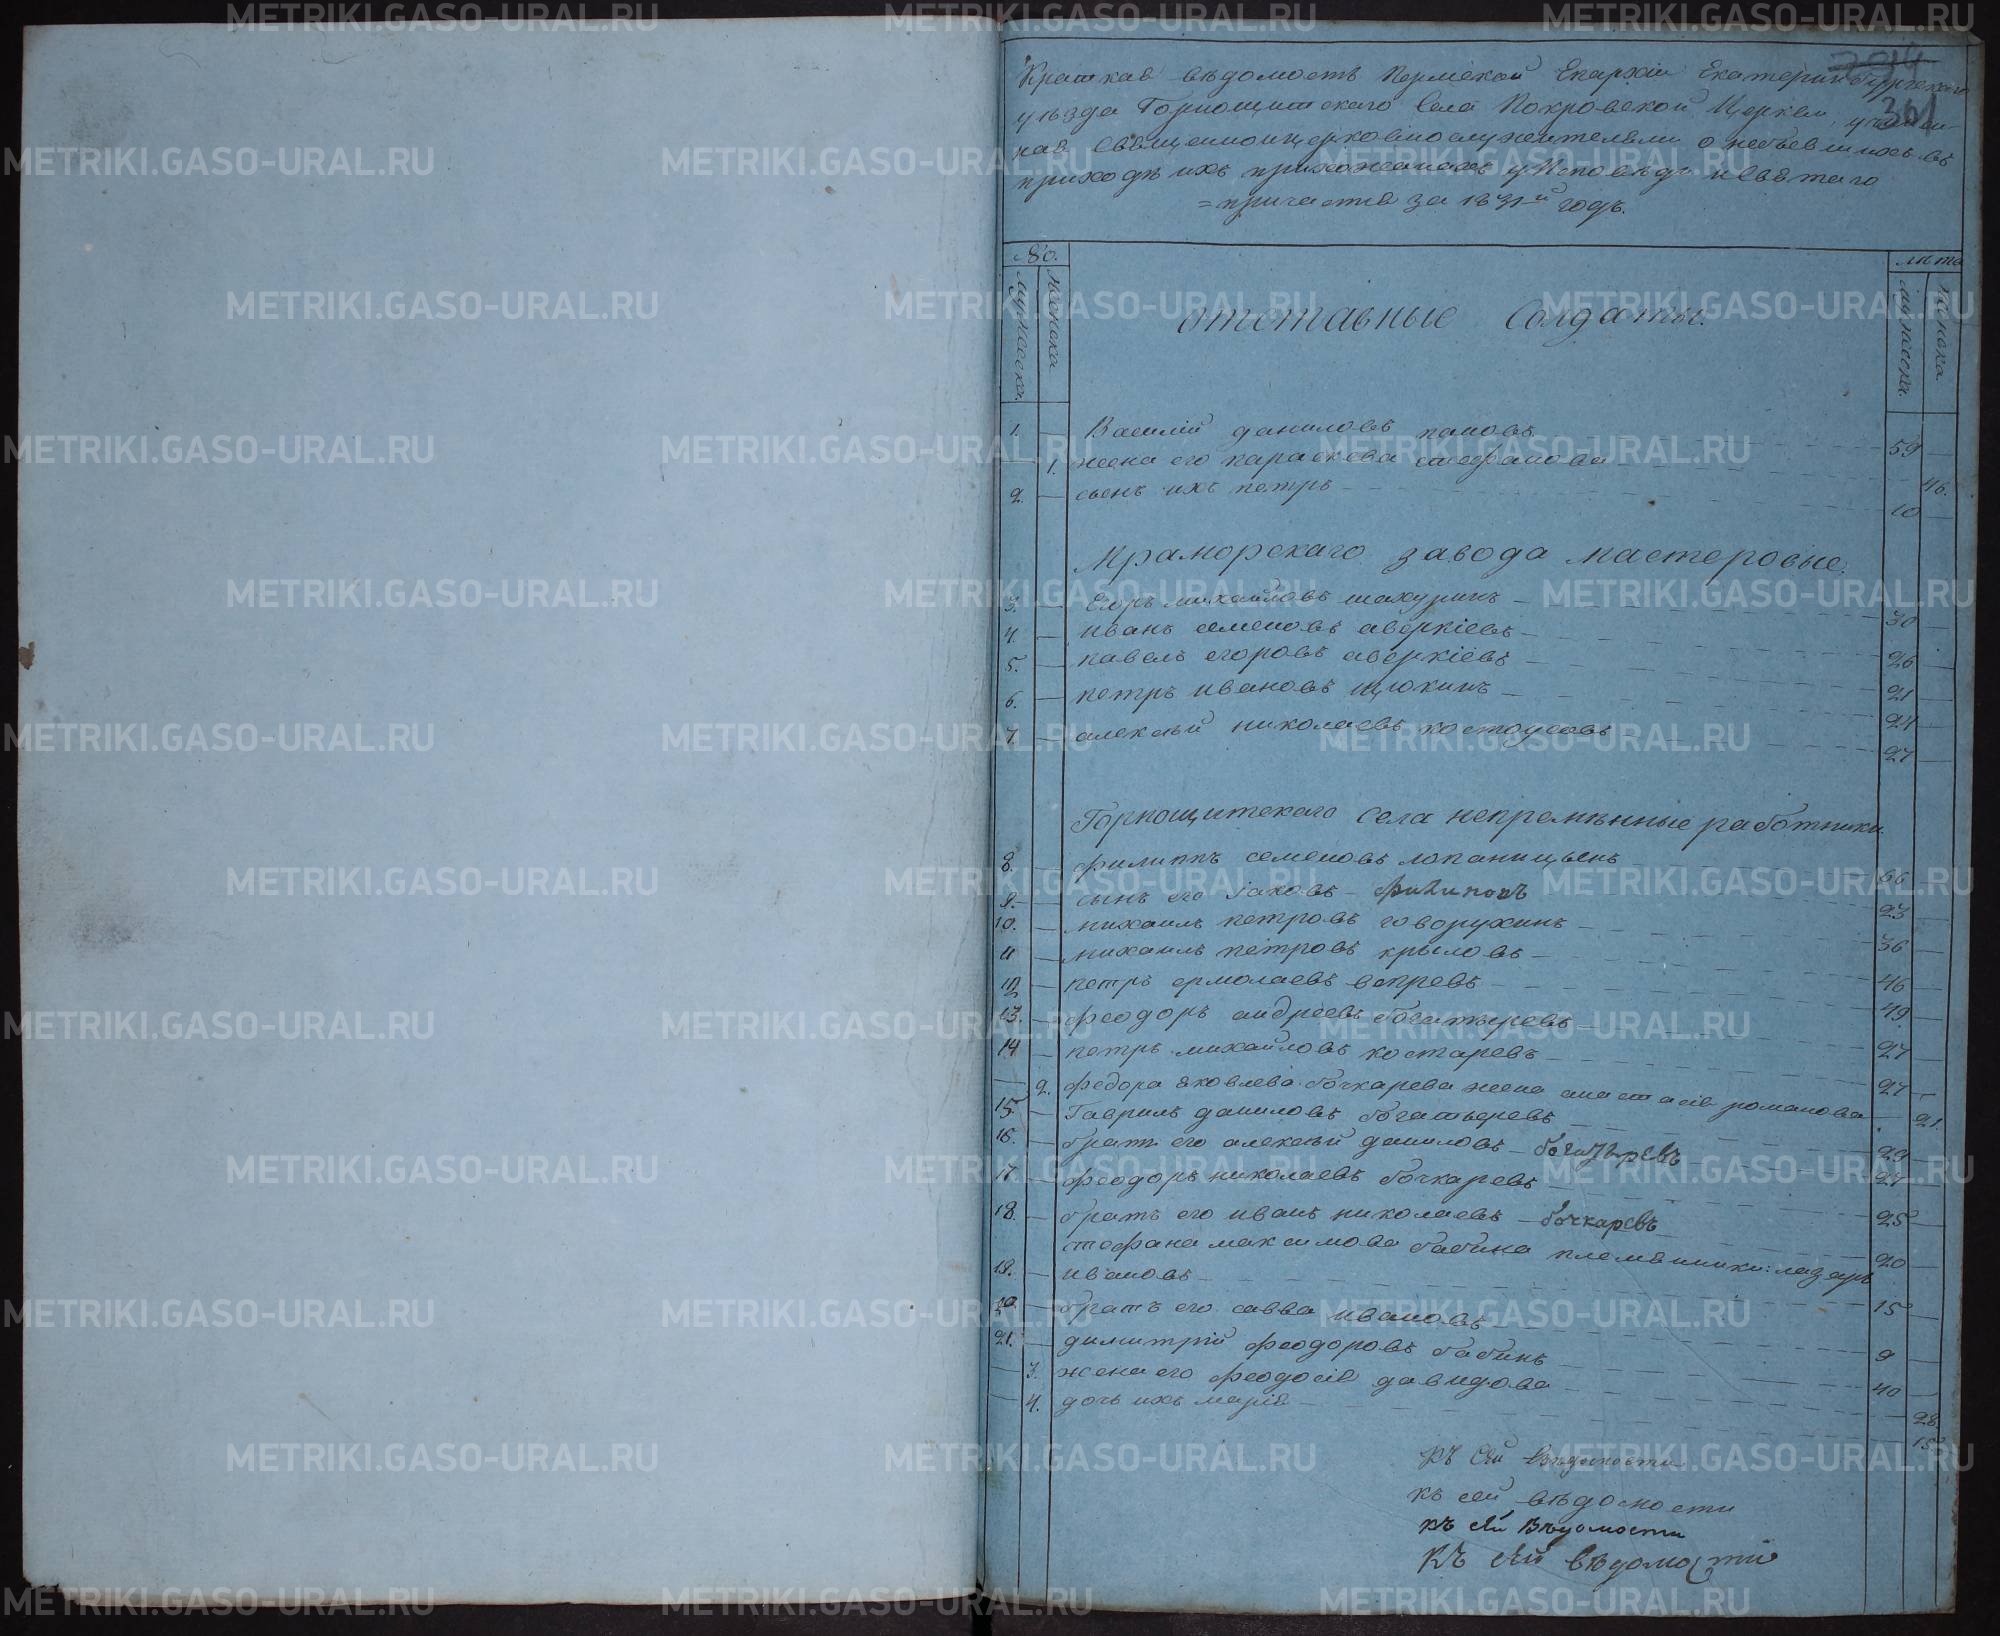 361
Краткая вѣдомость Пермской Епархіи Екатеринбургскаго
уѣзда Горнощитскаго Села Покровской Церкви, учинен-
ная Священноцерковнослужителями о небывшихъ въ
приходѣ ихъ прихожанахъ у Исповѣди и Святаго
= причастія за 1831й годъ.
№.
лѣта
мужеска.
женска
мужеска.
женска.
отставные Солдаты.
1. Василій даниловъ поповъ 59
1. жена его параскева стефанова 46.
2. сынъ ихъ петръ 10
Мраморскаго завода мастеровые.
3. Егоръ михайловъ шахуринъ 30
4. иванъ семеновъ аверкіевъ 26
5. павелъ егоровъ аверкіевъ 21
6. петръ ивановъ щюкинъ 24
7. алексѣй николаевъ костоусовъ 27
Горнощитскаго села непремѣнные работники
8. филиппъ семеновъ лопаницынъ 66
9. сынъ его Іаковъ филиповъ 23
10. михаилъ петровъ говорухинъ 36
11 михаилъ петровъ крыловъ 46
12 петръ ермолаевъ вепревъ 49.
13. феодоръ андреевъ богатыревъ 27
14 петръ михайловъ костаревъ 27
2. федора яковлева бочкарева жена анастасія романова 21.
15. Гаврилъ даниловъ богатыревъ 29
16. братъ его алексѣй даниловъ богатыревъ 27
17 феодоръ николаевъ бочкаревъ 25
18. братъ его иванъ николаевъ бочкаревъ 20
стефана максимова бабина племянники: лазарь
19. ивановъ 15
20. братъ его савва ивановъ 9
21. димитрій феодоровъ бабинъ 40
3. жена его феодосія давидова 28.
4. дочь ихъ марія 15.
къ сей вѣдомости
къ сей вѣдомости
къ сей вѣдомости
къ сей вѣдомости